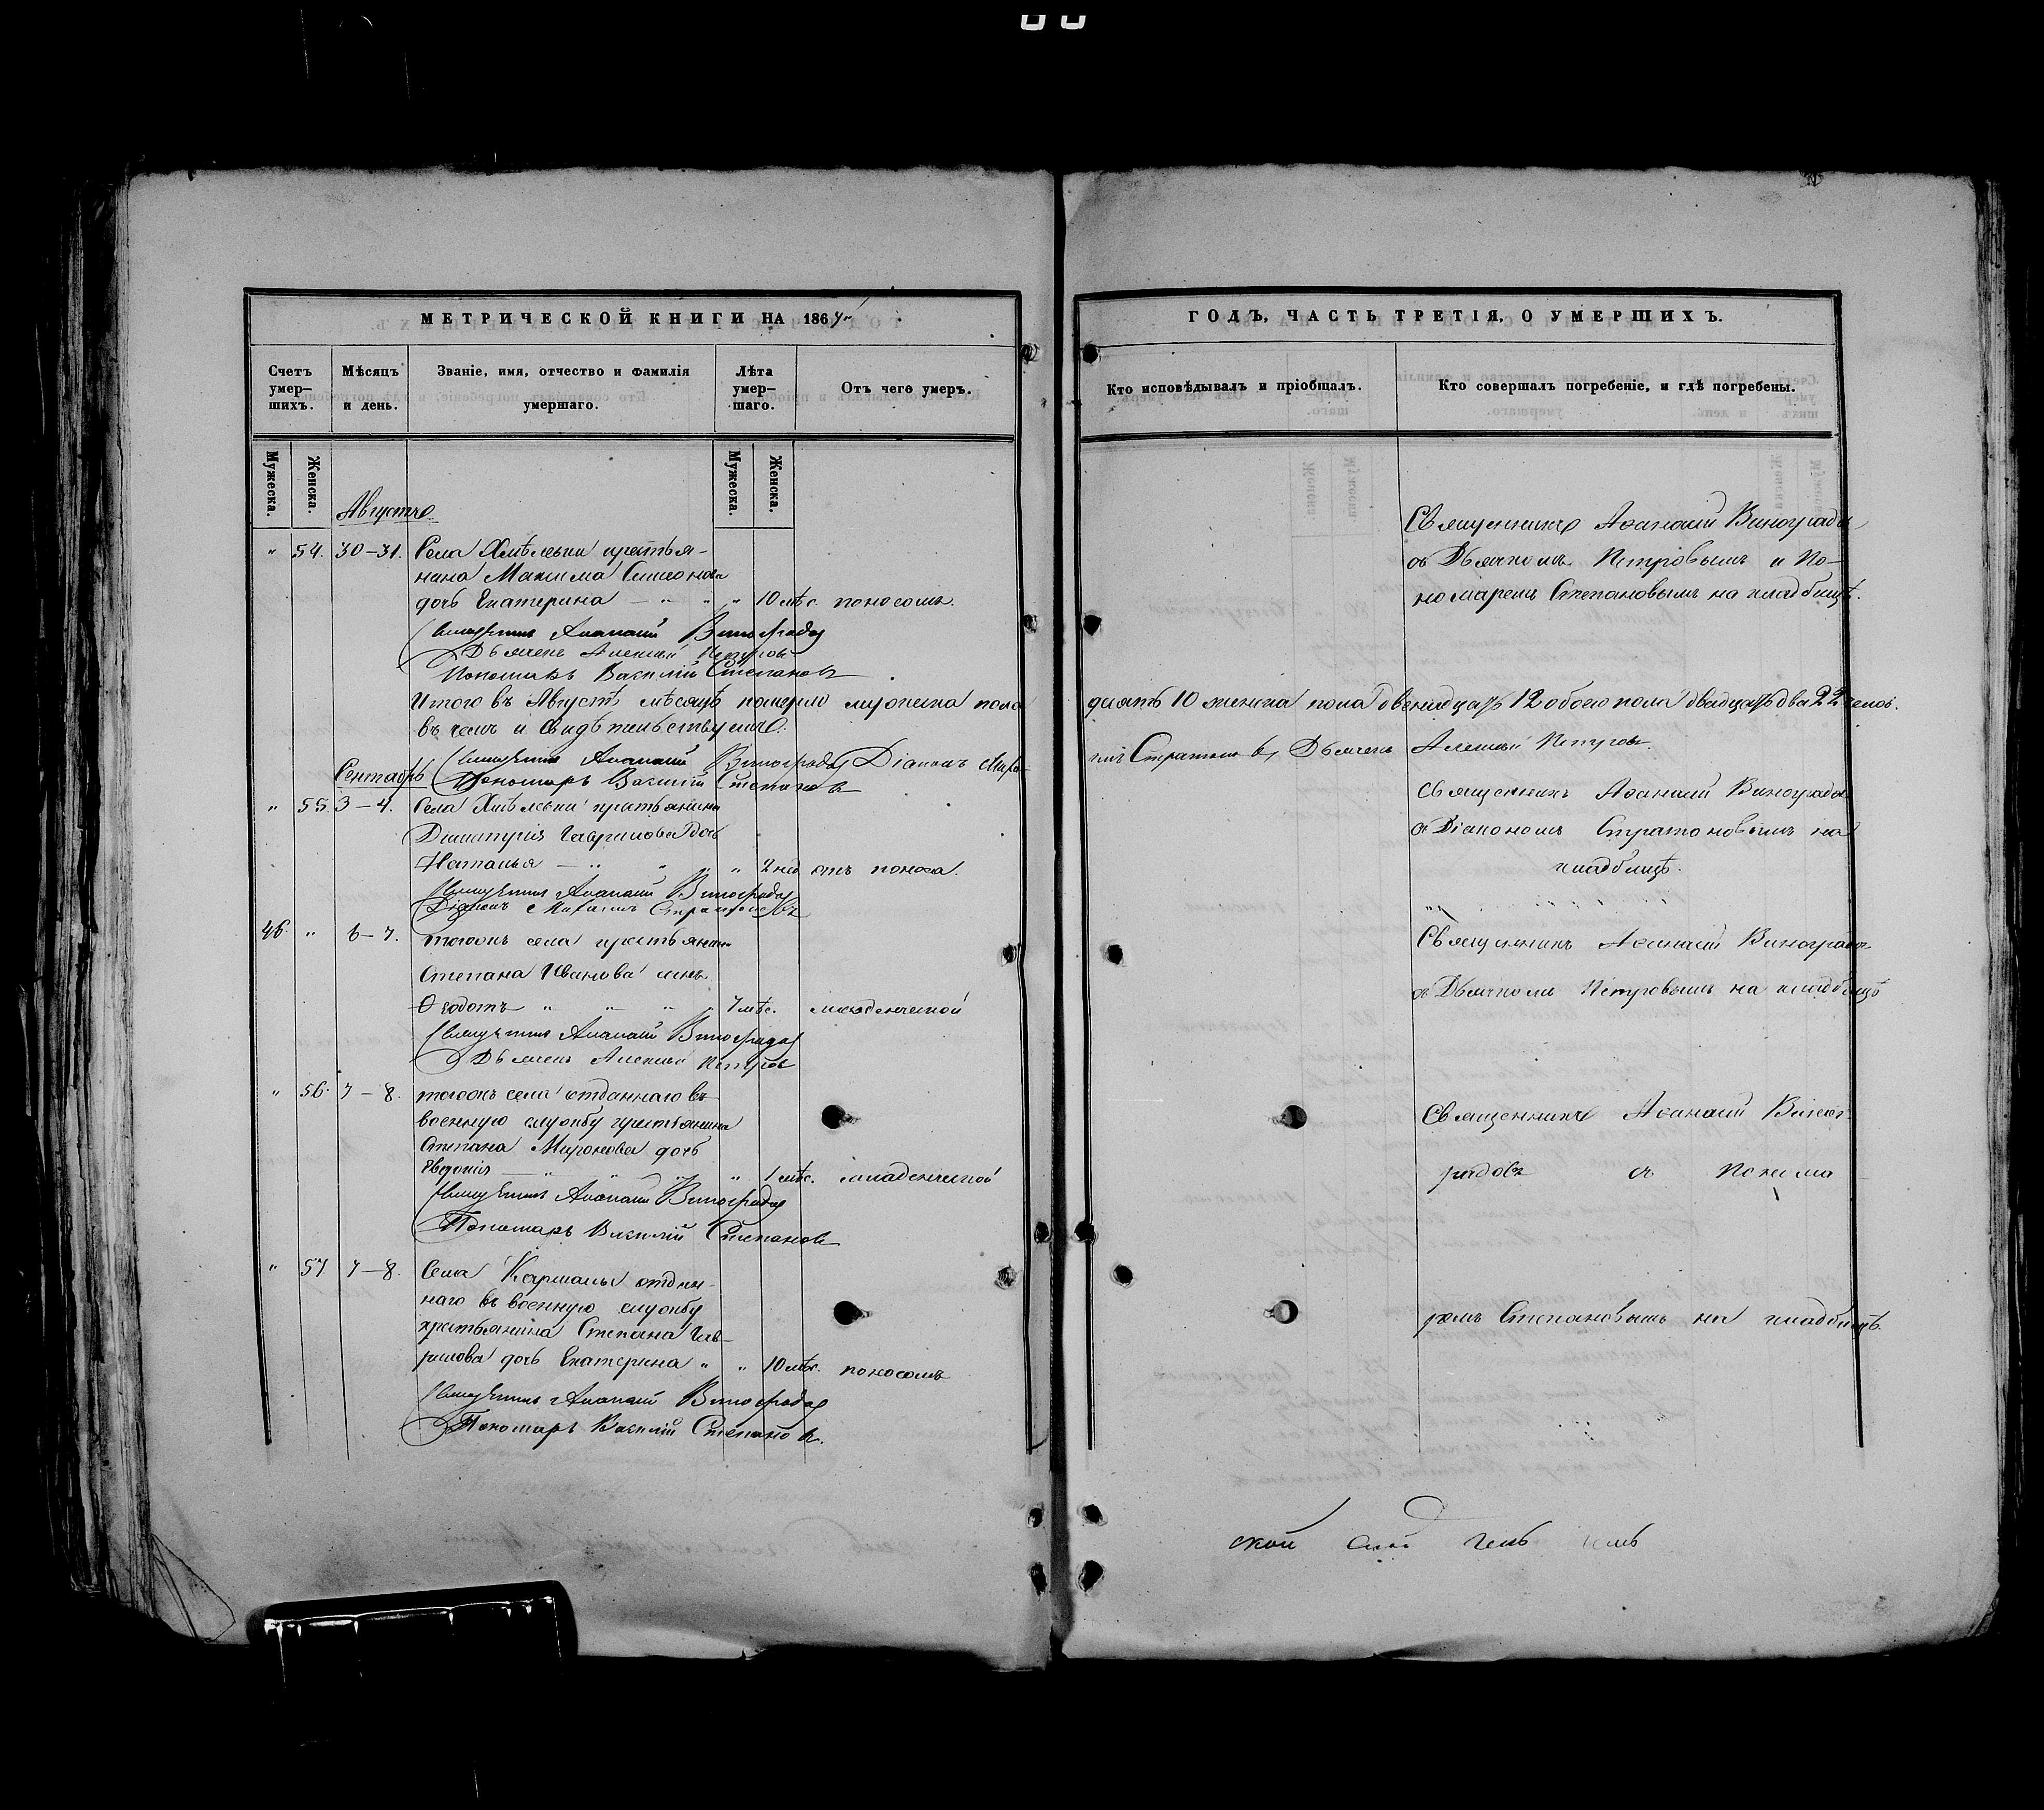 МЕТРИЧЕСКОЙ КНИГИ НА 1864
Счетъ умер-шихъ.
Мѣсяцъ и день.
Званіе, имя, отчество и фамилія умершаго.
Лѣта умер-шаго.
Отъ чего умеръ.
Мужеска.
Женска.
Мужеска.
Женска.
Августъ.
" 54. 30-31. Села Хмѣлевки крестья-
нина Максима Симеонова
дочь Екатерина — " " " 10 мѣс. поносомъ.
Священникъ Афанасій Виноградов
Дьячекъ Алексѣй Петров
Пономарь Василій Степановъ
Итого въ Августѣ мѣсяцѣ померло мужеска пола
въ чемъ и свидѣтельствуемъ.
Священникъ Афанасій Виноградов Діаконъ
Сентябрь Пономарь Василій Степановъ
" 55. 3-4. Села Хмѣлевки крестьянина
Димитрія Гаврилова дочь
Наталья — " " " " 2 нед отъ поноса.
Священникъ Афанасій Виноградов
Діаконъ Стратоновъ
46. " 6-7. тогожъ села крестьянина
Степана Иванова сынъ
Ѳеодотъ " " " " 7 мѣс. младенческой
Священникъ Афанасій Виноградов
Дьячекъ Алексѣй Петров
" 56. 7-8. тогожъ села отданнаго въ
военную службу крестьянина
Степана Миронова дочь
Евдокія — " " " " 1 мѣс. младенческой
Священникъ Афанасій Виноградов
Пономарь Василій Степановъ
" 57. 7-8. Села Кармалы отдан-
наго въ военную службу
крестьянина Степана Гав-
рилова дочь Екатерина " " 10 мѣс. поносомъ
Священникъ Афанасій Виноградов
Пономарь Василій Степановъ.
ГОДЪ, ЧАСТЬ ТРЕТІЯ, О УМЕРШИХЪ.
Кто исповѣдывалъ и пріобщалъ.
Кто совершалъ погребеніе, и гдѣ погребены.
Священникъ Аѳанасій Виноградов
съ Дьячкомъ Петровымъ и По-
номаремъ Степановымъ на кладбищѣ.
десять 10 женска пола двенадцать 12 обоего пола двадцать два 22 челов.
Стратоновъ, Дьячекъ Алексѣй Петровъ.
Священникъ Аѳанасій Виноградов
съ Діакономъ Стратоновымъ на
кладбищѣ.
Священникъ Аѳанасій Виноградов
съ Дьячкомъ Петровымъ на кладбищѣ
Священникъ Аѳанасій Виног-
радовъ съ Понома
ремъ Степановымъ на кладбищѣ.
ской